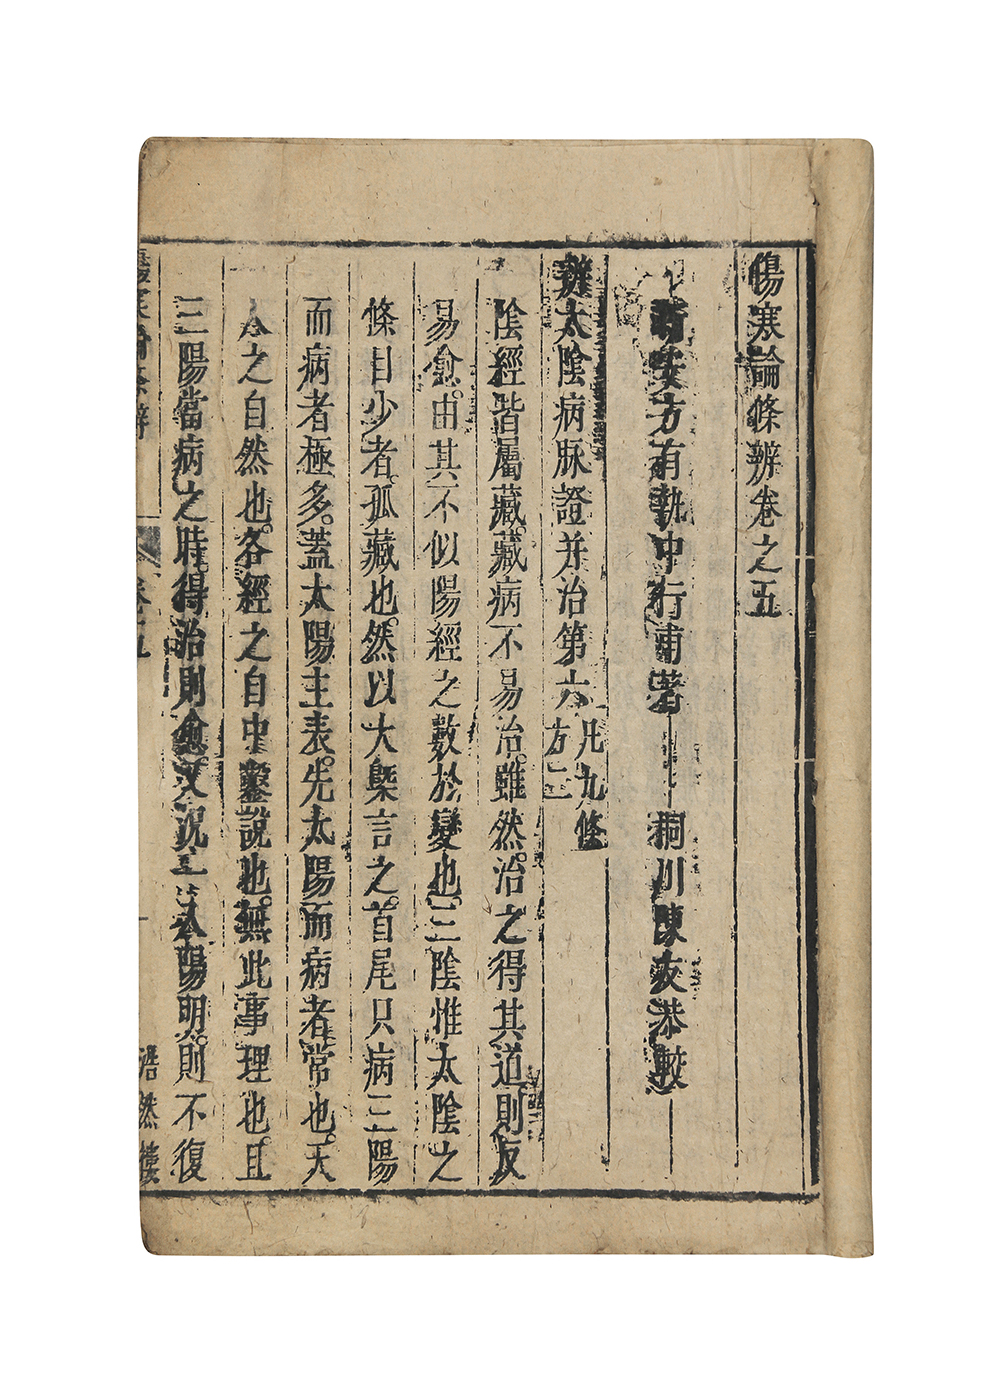 傷寒論條辨卷之五
方有執中行甫著 桐川陳友恭較
辨太陰病脉證并治第六 凡九條
方二
陰經皆屬藏。藏病不易治。雖然治之得其道。則反
易愈。由其不似陽經之數於變也。三陰惟太陰之
條目少者。孤藏也。然以大槩言之。首尾只病三陽
而病者極多。蓋太陽主表。先太陽而病者常也。天
人之自然也。各經之自中。鑿說也。無此事理也。且
三陽當病之時。得治則愈。又況三 太陽明。則不復
傷寒論條辨 卷之五 浩然樓